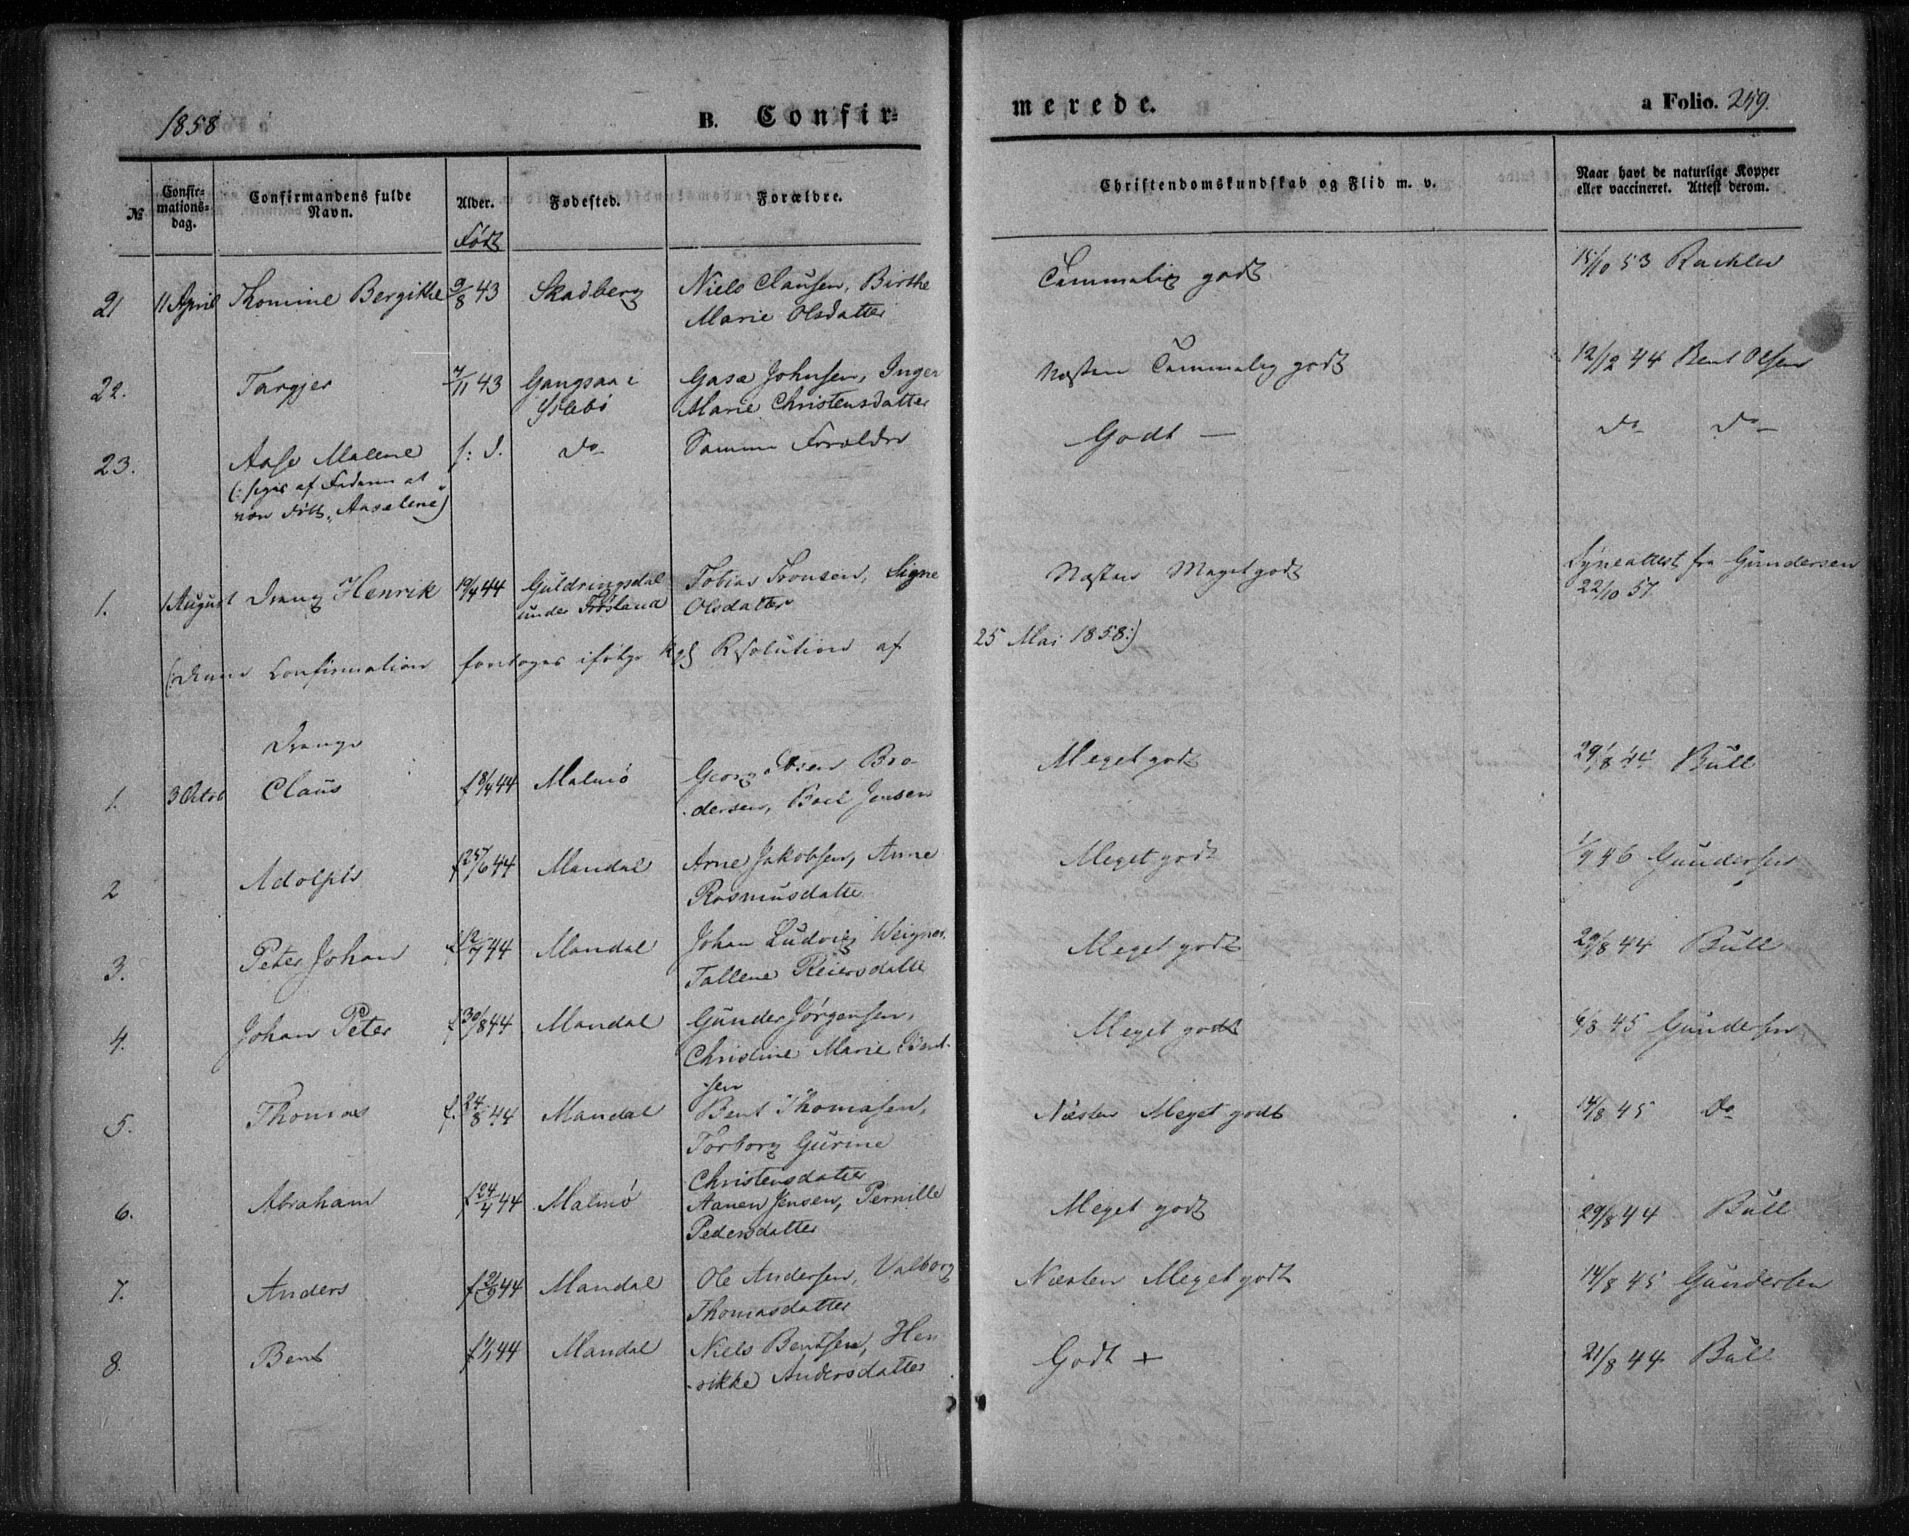 1858
B. Confir=
merede.
a Folio. 259.
№
Confir-
mations-
dag.
Confirmandens fulde
Navn.
Alder.
Født
Fødested.
Forældre.
Christendomskundskab og Flid m. v.
Naar havt de naturlige Kopper
eller vaccineret. Attest derom.
21 11 April Thomine Bergithe 9/8 43 Skadberg Niels Clausen, Birthe Tammelig godt 15/10 53
Marie Olsdatter
22. Targjer 4/11 43 Gangsaa i Gasa Johnsen, Inger Næsten Tammelig godt 12/12 44 Bent Olsen
Marie Christensdatter
23. Aase Malene f: d. do Samme Forældre Godt — do do
(: siges af Faderen at
være født „Aaselene")
1. 1 August Dreng Henrik 19/4 44 Guldringsdal Tobias Svensen, Signe Næsten Megetgodt Syneattest fra Gundersen
under Frøsland Olsdatter 22/10 57
(: denne Confirmation foretages ifølge Kgl Resolution af 25 Mai 1858:)
Drenge
1. 3 Octob Claus f 18/4 44 Malmø Georg Bro- Meget godt 29/8 44 Bull
dersen, Jensen
2 Adolph f 25/6 44 Mandal Arne Jakobsen, Anne Meget godt 1/9 46 Gundersen
Rasmusdatter
3. Peter Johan f 12/7 44 Mandal Johan Ludvig Weigner, Meget godt 29/8 44 Bull
Tallene Reiersdatter
4. Johan Peter f 30/8 44 Mandal Gunder Jørgensen, Meget godt 6/8 45 Gundersen
Christine Marie
sen
5. Thomas f. 24/8 44 Mandal Bent Thomasen, Næsten Meget godt 14/8 45 do
Torborg Gurine
Christensdatter
6. Abraham f 24/4 44 Malmø Aanen Jensen, Pernille Meget godt 29/8 44 Bull
Pedersdatter
7. Anders 44 Mandal Ole Andersen, Valborg Næsten Meget godt 14/8 45 Gundersen
Thomasdatter
8. Bent 44 Mandal Niels Bentsen, Hen Godt + 21/8 44 Bull
rikke Andersdatter